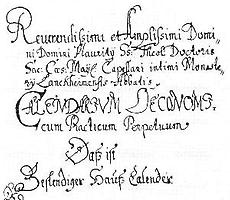 Reverendissimi et Amplissimi Domi,
ni Domini Mauritij Ss: Theol: Doctoris
Sac: Cæs: Maytt: Capellani intimi Monaste,
rij Lanckheimensis Abbatis
CALENDARIUM OECONOMI,
cum Practicum Perpetuum
Daß ist
Beständiger Hauß Calender